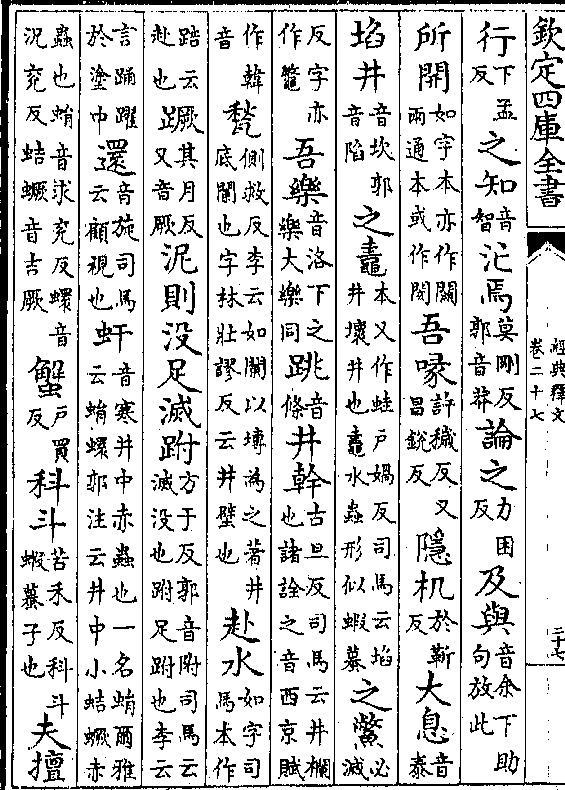 欽定四庫全書
經典釋文
卷二十七
二十七
行下孟反之知音智汒焉莫剛反郭音莽論之力困反及與音余下助句放此
所開如字本亦作關兩通本或作閡吾喙許穢反又昌銳反隱机於靳反大息音泰
埳井音坎郭音陷之鼃本又作蛙戶媧反司馬云埳井壞井也鼃水蟲形似蝦蟇之鱉必滅
反字亦作鼈吾樂音洛下之樂大樂同跳音條井幹古旦反司馬云井欄也諸詮之音西京賦
作韓音甃側救反李云如闌以塼為之著井底闌也字林壯謬反云井壁也赴水如字司馬本作
踣云赴也蹶其月反又音厥泥則没足滅跗方于反郭音附司馬云滅没也跗足跗也李云
言踊躍於塗中還音旋司馬云顧視也虷音寒井中赤蟲也一名蜎爾雅云蜎蠉郭注云井中小蛣蟩赤
蟲也蜎音求兖反蠉音況兖反蛣蟩音吉厥蟹戶買反科斗苦禾反科斗蝦蟇子也夫擅